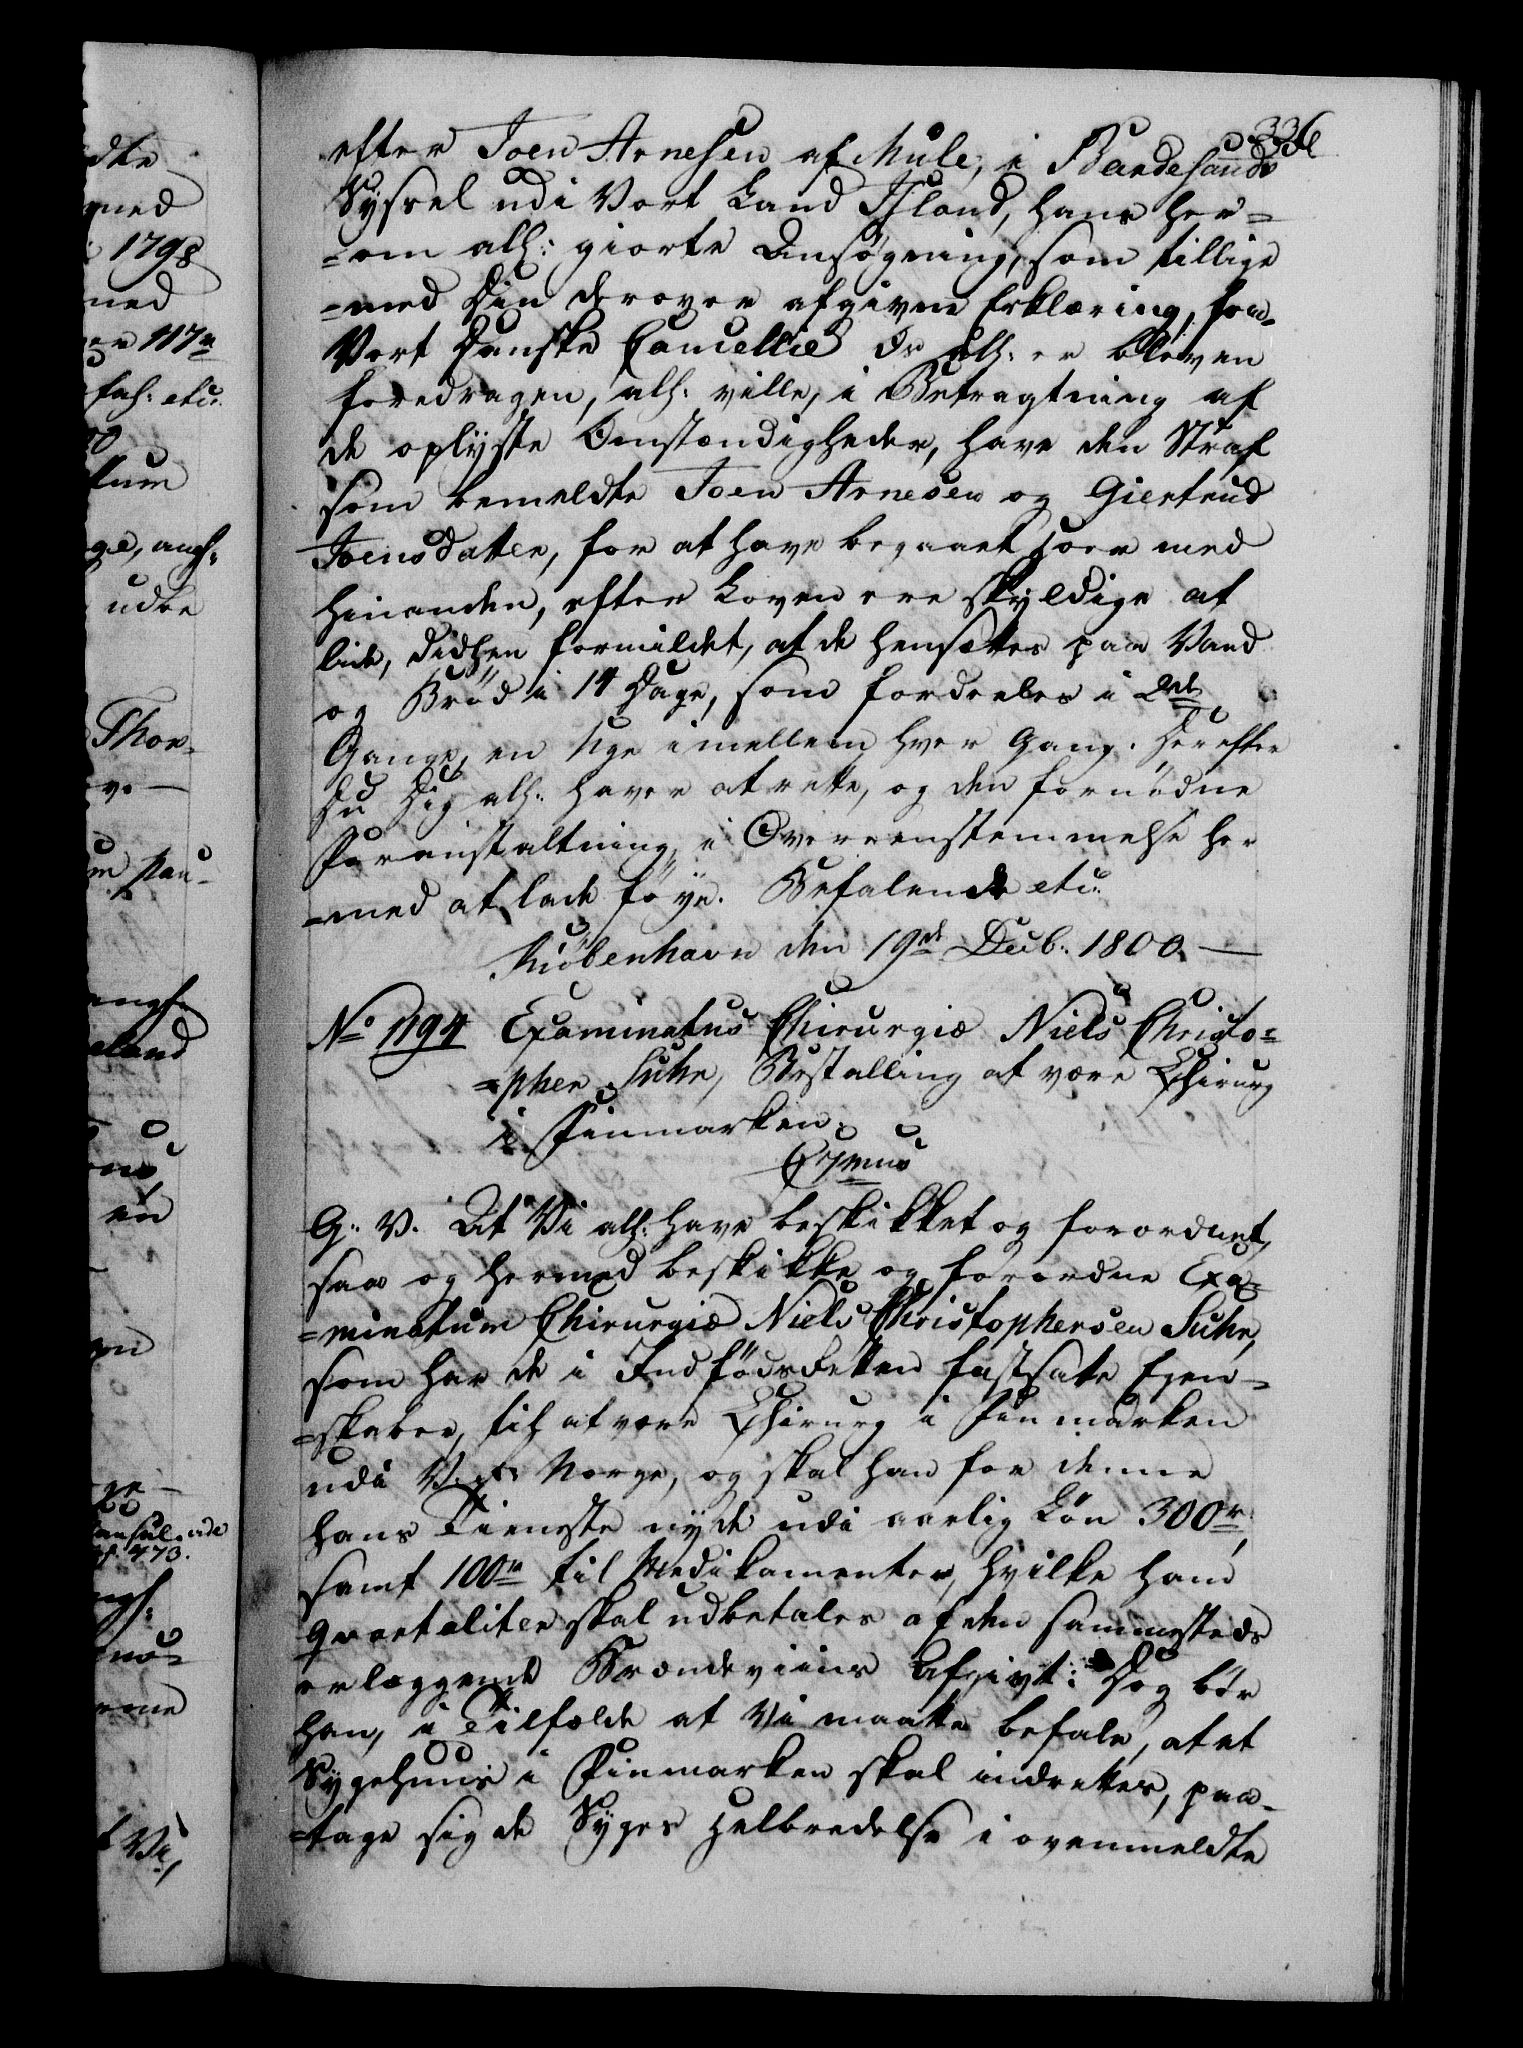 336
efter Joen Arnesen af Mule, i Bardestrands
Syssel udi Vort Land Island, hans her=
=om alh: giorte Ansøgning, som tillige
=med Din derover afgivne Erklæring, fra
Vort Danske Cancellie Os alh: er bleven
foredragen, alh: ville, i Betragtning af
de oplyste Omstændigheder, have den Straf
som bemeldte Joen Arnesen og Giertrud
Joensdatter, for at have begaaet Hoer med
hinanden, efter Loven ere skyldige at
lide, didhen formildet, at de hensættes paa Vand
og Brød i 14 Dage, som fordeeles i
Gange, en Uge imellem hver Gang. Herefter
Du Dig alh: haver at rette, og den fornødne
Foranstaltning, i Overeenstemmelse her
=med at lade føye. Befalende etc:
Kiøbenhavn den 19de Decb: 1800. —
No 1194 Examinatus Chirurgiæ Niels Christo=
=pher Suhr, Bestalling at være Chirurg
i Finmarken.
G: V. At Vi alh: have beskikket og forordnet,
saa og hermed beskikke og forordne Exa=
=minatum Chirurgiæ Niels Christophersen Suhr,
som har de i Indfødsretten fastsatte Egen=
=skaber, til at være Chirurg i Finmarken
udi V. R: Norge, og skal han for denne
hans Tieneste nyde udi aarlig Løn 300 r,
samt 100 r til Medikamenter, hvilke ham
qvartaliter skal udbetales af den sammesteds
erlæggende Brændeviins Afgivt: Dog bør
han, i Tilfælde at Vi maatte befale, at et
Sygehuus i Finmarken skal indrettes, paa=
=tage sig de Syges Helbredelse i ovenmeldte